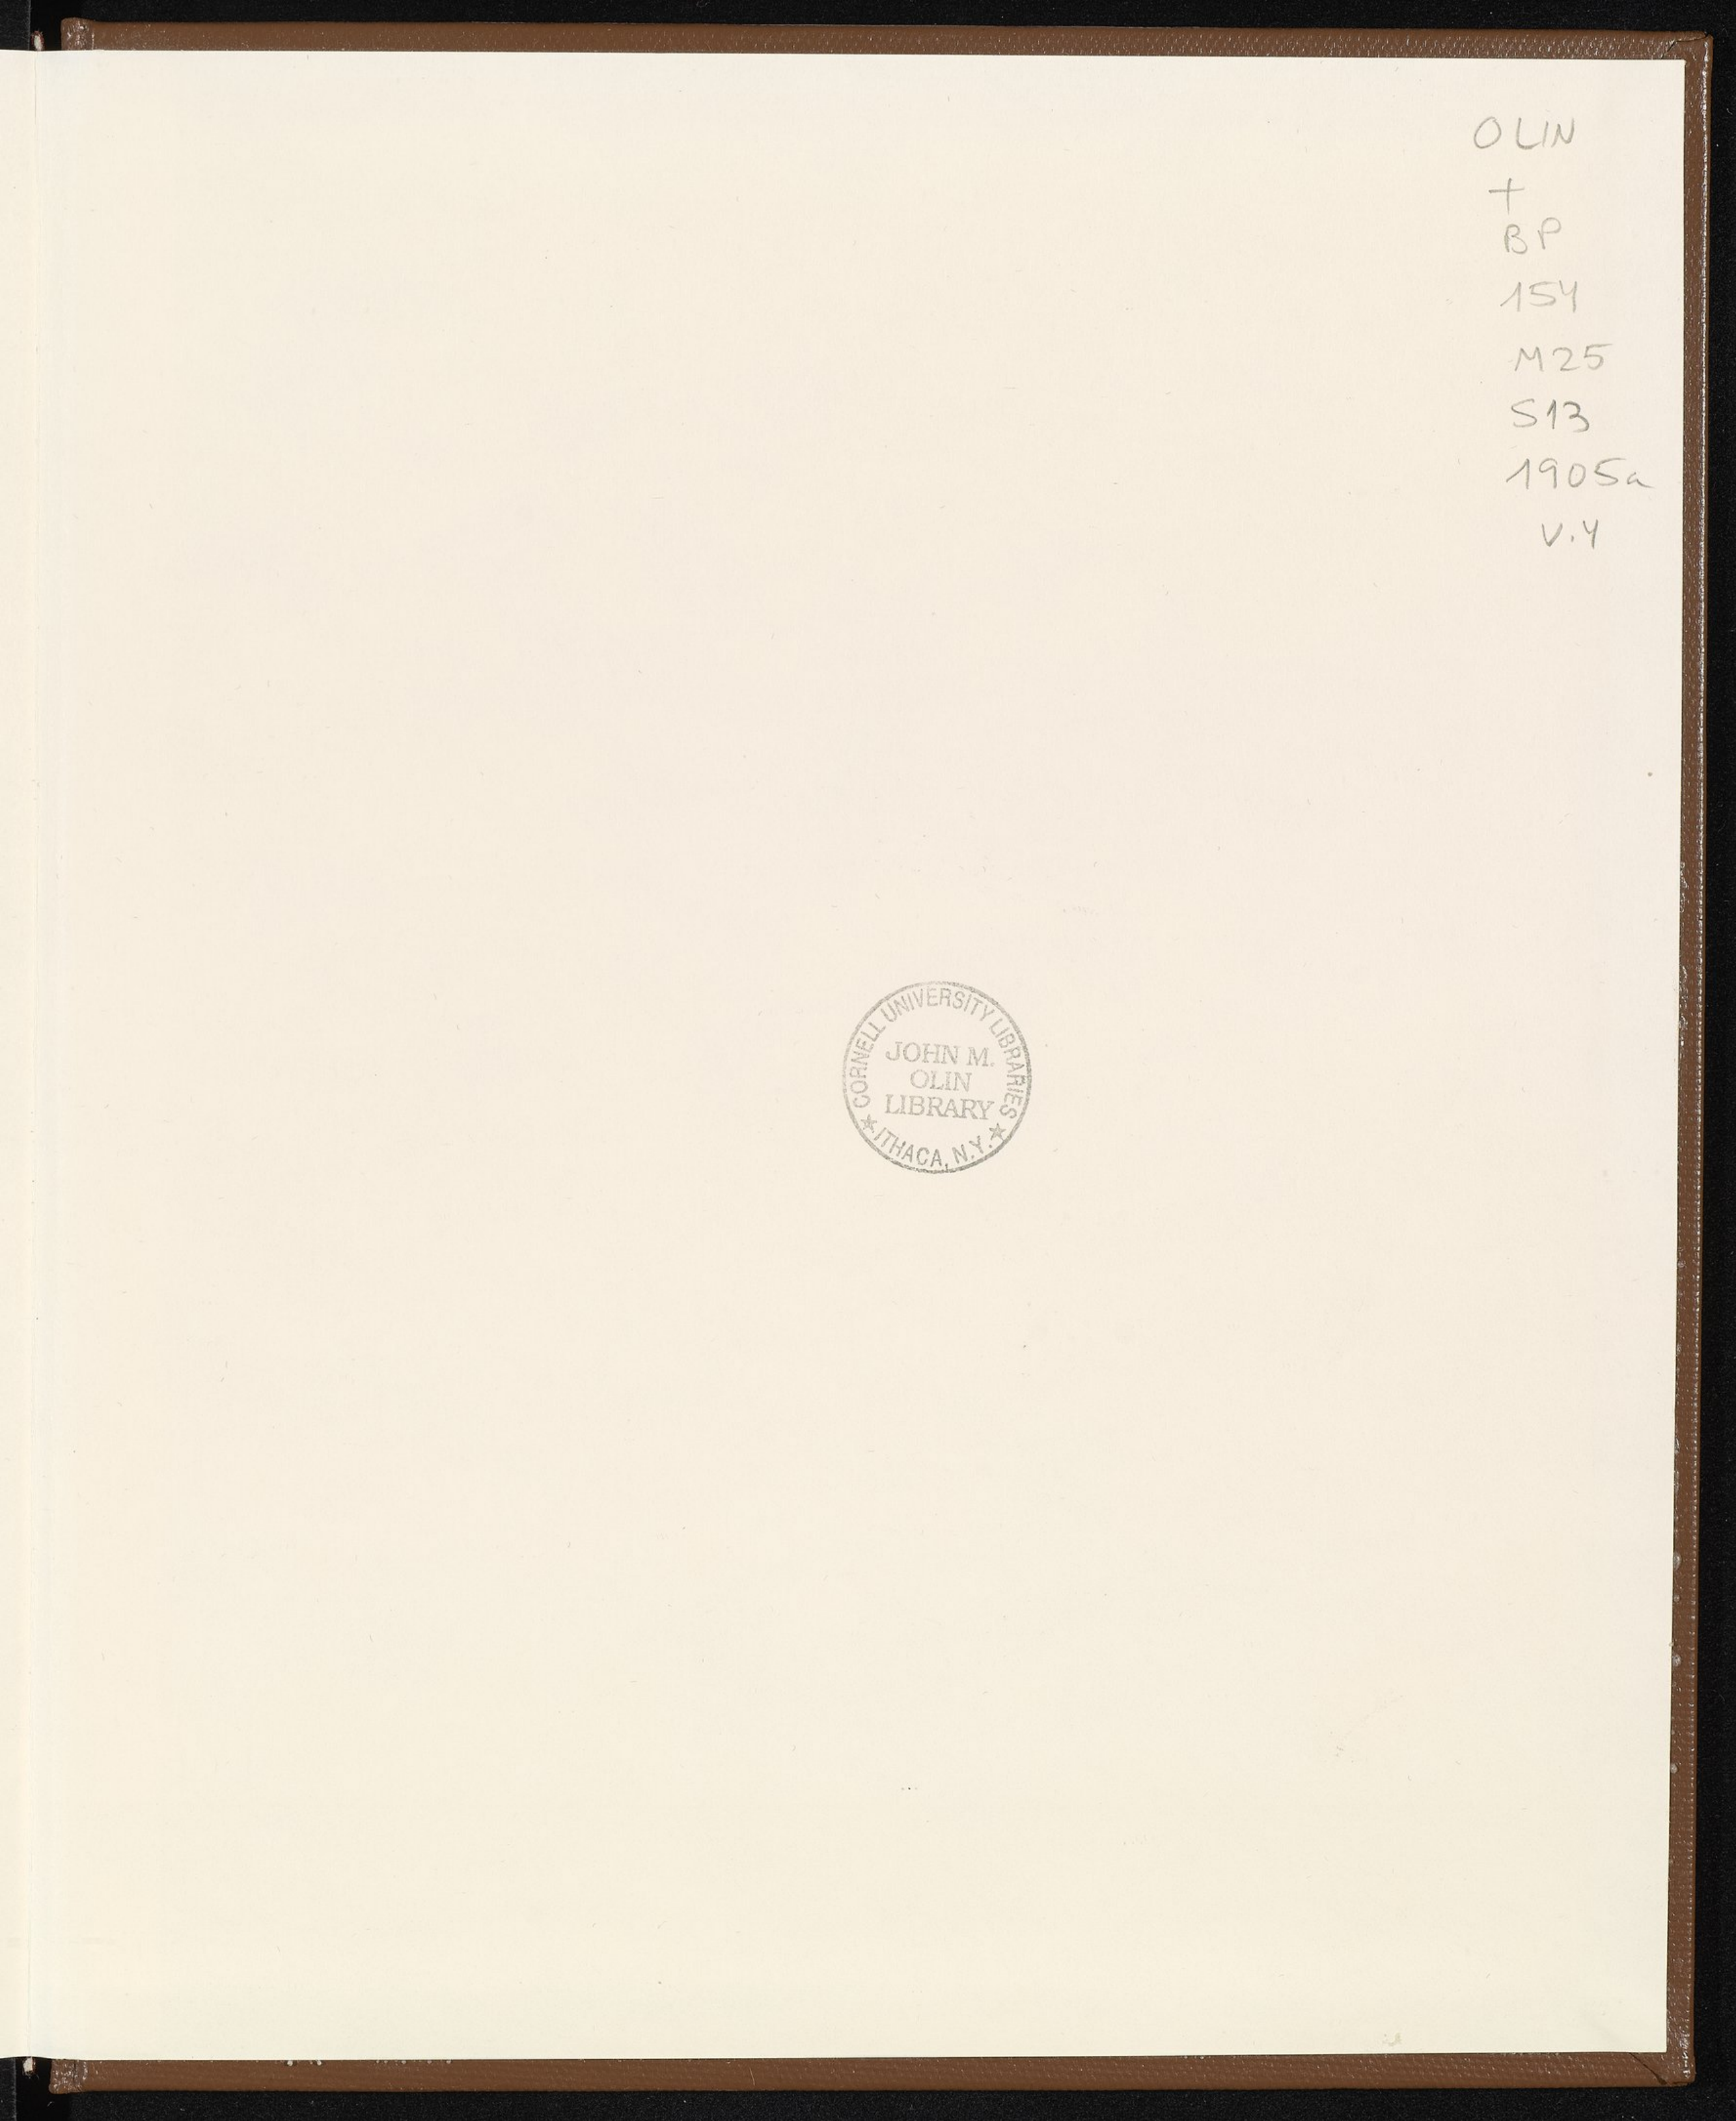 OLIN
+
BP
154
M25
S13
1905a
v.4
CORNELL UNIVERSITY LIBRARIES
JOHN M.
OLIN
LIBRARY
★ ITHACA, N.Y. ★